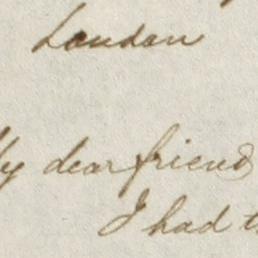 London
My dear friend
I had t